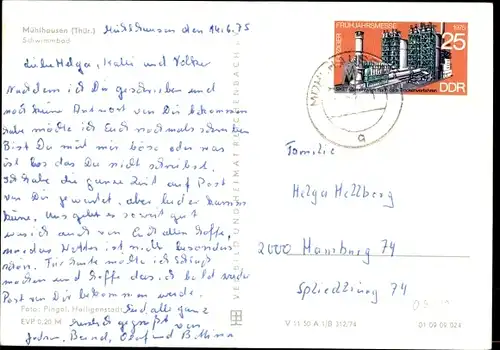 Mühlhausen (Thür.)
Schwimmbad
Mühlhausen den 14.6.75
Liebe Helga, und Volker
Nachdem ich Dir geschrieben und
noch keine Antwort von Dir bekommen
habe möchte ich Euch nochmals schreiben
Bist Du mit mir böse oder was
ist los das Du nicht schreibst.
Ich habe die ganze Zeit auf Post
von Dir gewartet, aber leider kam
keine. Uns geht es soweit gut
was ich auch von Euch allen hoffe,
nur das Wetter ist nicht besonders
schön. Für heute möchte ich Schluß
machen und hoffe das ich bald wieder
Post von Dir bekommen werde.
Foto: Pingel, Heiligenstadt
Seid alle ganz
EVP 0,20 M
herzlich gegrüßt von
Bernd, Olaf und B.
VERLAG BILD UND HEIMAT REICHENBACH
LEIPZIGER FRÜHJAHRSMESSE 1975
25
DDR
a
Familie
Helga Hellberg
2000 Hamburg 74
Spliedtring 74
V 11 50 A 1/B 312/74
01 09 09 024